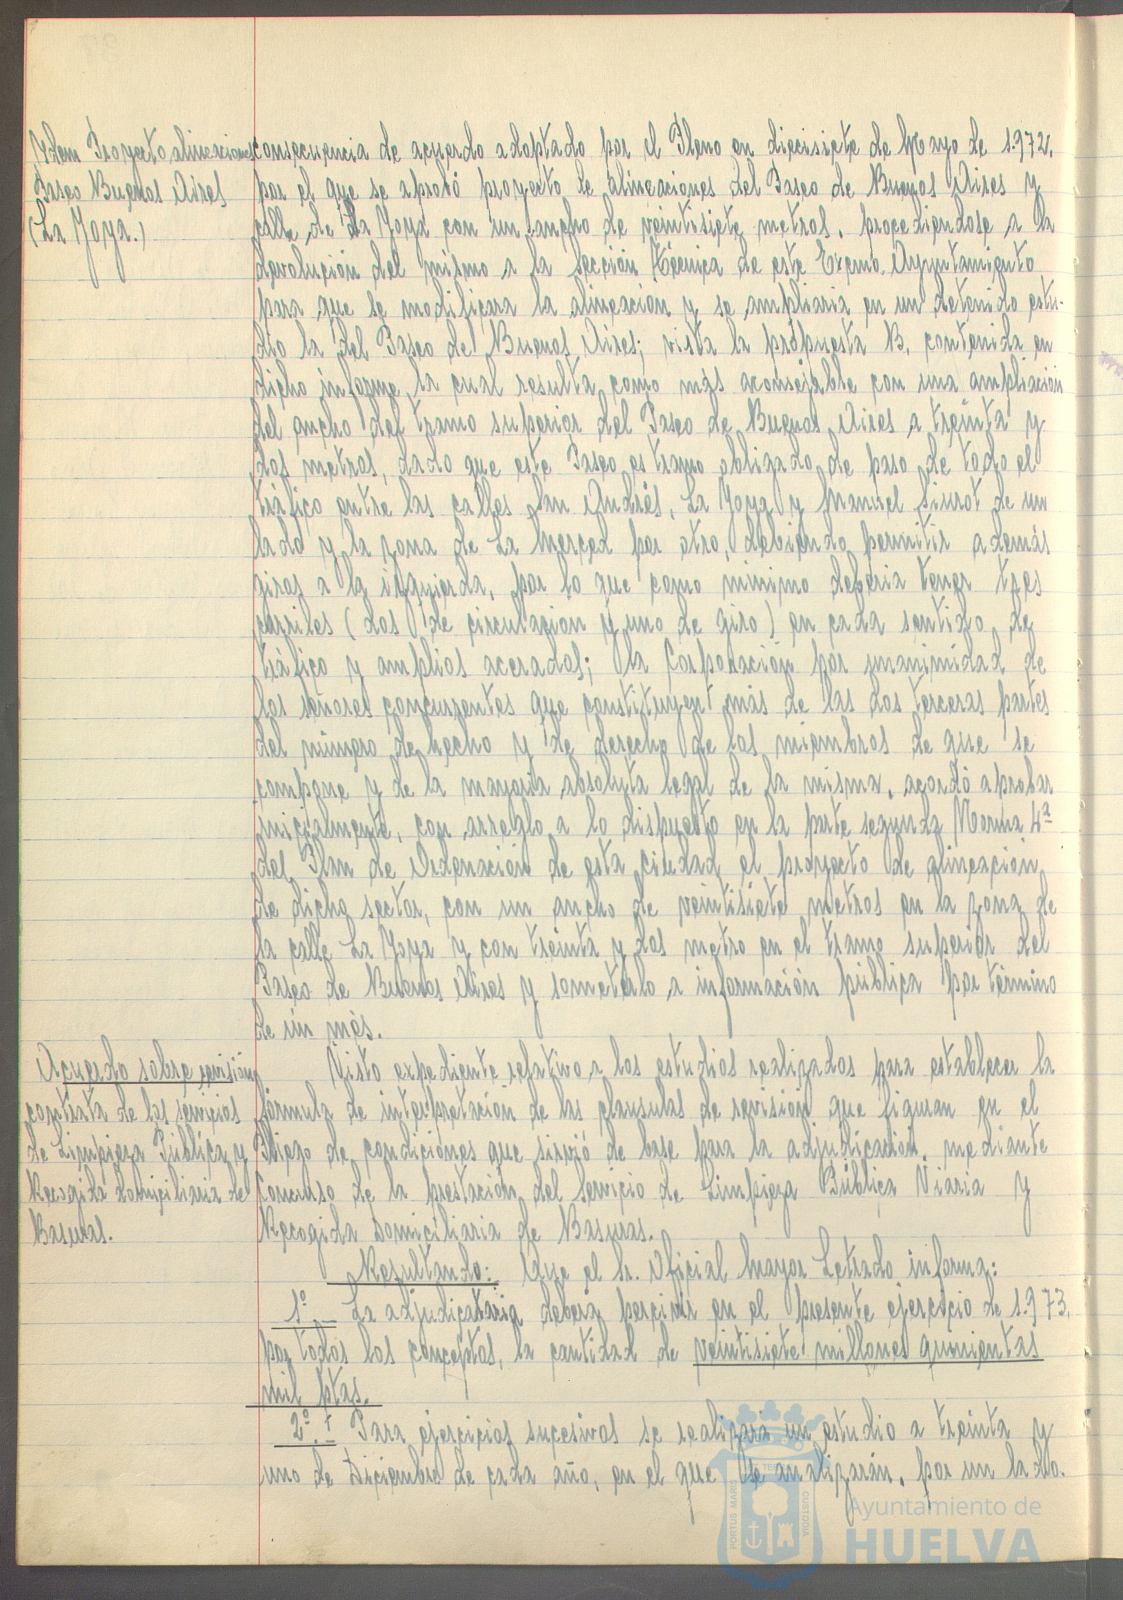 Ydem Proyecto alineaciones
Paseo Buenos Aires
(La Joya.)
consecuencia de acuerdo adoptado por el Pleno en diecisiete de Mayo de 1.972,
por el que se aprobó proyecto de alineaciones del Paseo de Buenos Aires y
calle de La Joya con un ancho de veintisiete metros, procediendose a la
devolución del mismo a la Sección Técnica de este Excmo. Ayuntamiento
para que se modificara la alineación y se ampliaria en un detenido estu-
dio la del Paseo del Buenos Aires; vista la propuesta B, contenida en
dicho informe, la cual resulta como más aconsejable con una ampliación
del ancho del tramo superior del Paseo de Buenos Aires a treinta y
dos metros, dado que este Paseo es tramo obligado de paso de todo el
tráfico entre las calles San Andrés, La Joya y Manuel Siurot de un
lado y la zona de La Merced por otro, debiendo permitir además
giros a la izquierda, por lo que como minimo deberia tener tres
carriles (dos de circulación y uno de giro) en cada sentido de
tráfico y amplios acerados; la Corporación por unanimidad de
los señores concurrentes que constituyen más de las dos terceras partes
del número de hecho y de derecho de los miembros de que se
compone y de la mayoría absoluta legal de la misma, acordó aprobar
inicialmente, con arreglo a lo dispuesto en la parte segunda Norma 4ª
del Plan de Ordenación de esta ciudad el proyecto de alineación
de dicho sector, con un ancho de veintisiete metros en la zona de
la calle La Joya y con treinta y dos metro en el tramo superior del
Paseo de Buenos Aires y someterlo a información pública por término
de un mes.
Acuerdo sobre revisión
contrata de los servicios
de Limpieza Pública y
Recogida domiciliaria de
Basuras.
Visto expediente relativo a los estudios realizados para establecer la
fórmula de interpretación de las clausulas de revisión que figuran en el
Pliego de condiciones que sirvió de base para la adjudicación, mediante
Concurso de la prestación del Servicio de Limpieza Pública Viaria y
Recogida Domiciliaria de Basuras.
Resultando: Que el Sr. Oficial Mayor Letrado informa:
1º - La adjudicataria deberá percibir en el presente ejercicio de 1.973,
por todos los conceptos, la cantidad de veintisiete millones quinientas
mil ptas.
2º.- Para ejercicios sucesivos se realizara un estudio a treinta y
uno de Diciembre de cada año, en el que se analizarán, por un lado.
PORTUS MARIS
CUSTODIA
Ayuntamiento de
HUELVA